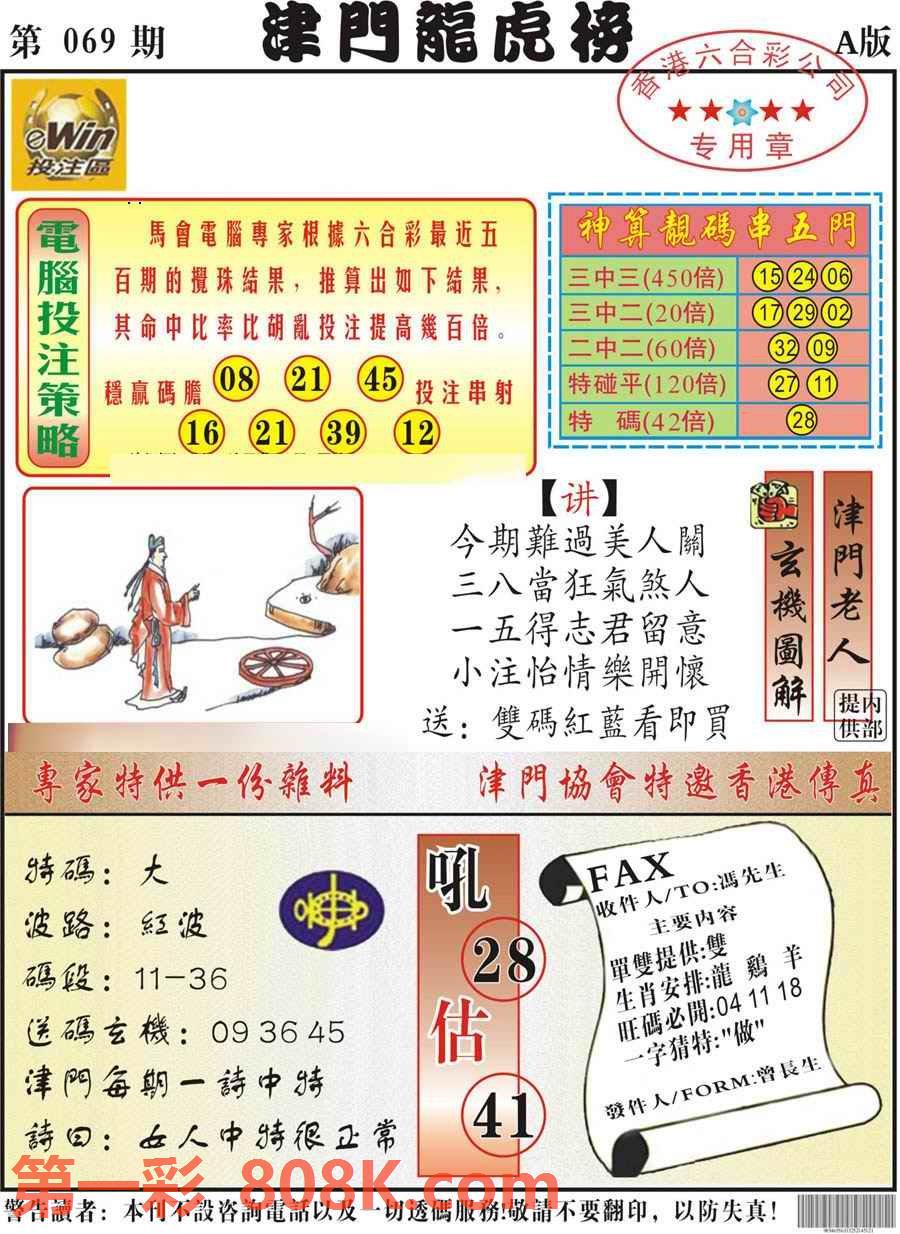 第 069 期
津門龍虎榜
A版
香港六合彩公司
专用章
eWin
投注區
電腦投注策略
馬會電腦專家根據六合彩最近五
百期的攪珠結果，推算出如下結果，
其命中比率比胡亂投注提高幾百倍。
穩贏碼膽 08 21 45 投注串射
16 21 39 12
神算靚碼串五門
三中三(450倍) 15 24 06
三中二(20倍) 17 29 02
二中二(60倍) 32 09
特碰平(120倍) 27 11
特 碼(42倍) 28
【讲】
今期難過美人關
三八當狂氣煞人
一五得志君留意
小注怡情樂開懷
送：雙碼紅藍看即買
玄機圖解
津門老人
内部提供
專家特供一份雜料
津門協會特邀香港傳真
特碼：大
波路：紅波
碼段：11-36
送碼玄機：09 36 45
津門每期一詩中特
詩曰：女人中特很正常
吼
28
估
41
FAX
收件人/TO:馮先生
主要内容
單雙提供:雙
生肖安排:龍 鷄 羊
旺碼必開:04 11 18
一字猜特:"做"
發件人/FORM:曾長生
第一彩 808K.com
警告讀者：本刊不設咨詢電話以及一切透碼服務!敬請不要翻印，以防失真!